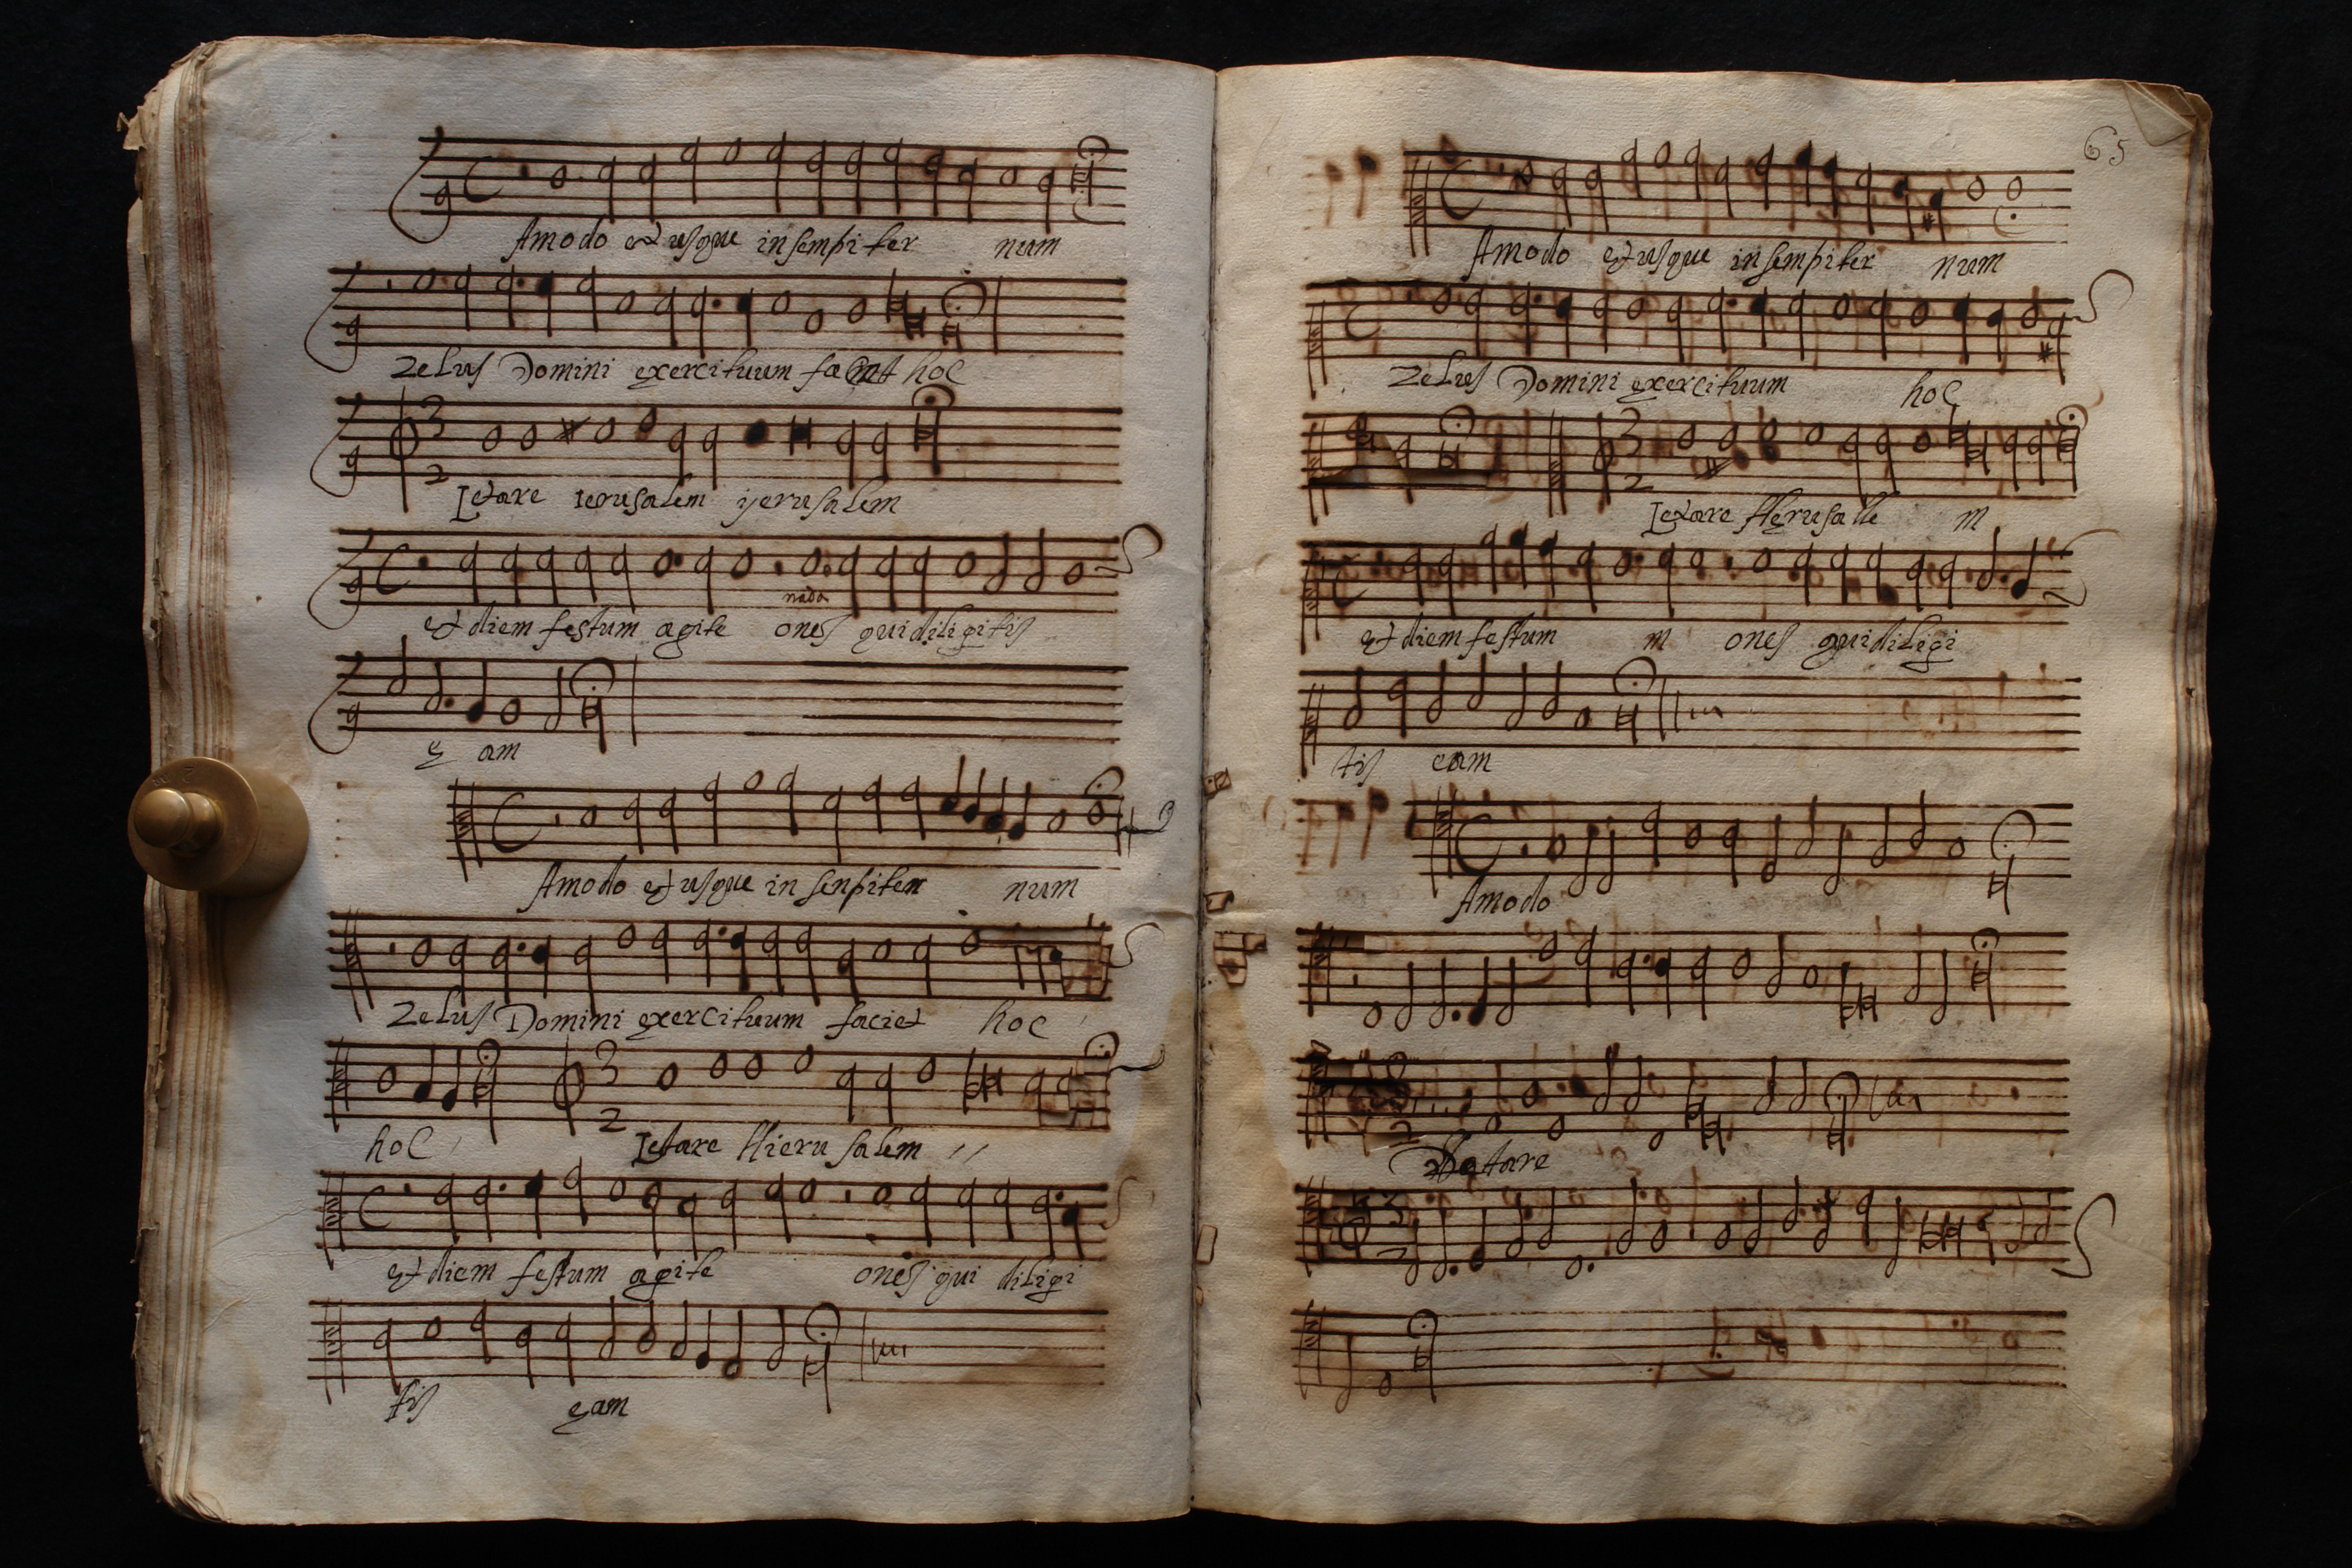 Amodo et usque in sempi ter num
Zelus Domini exercituum hoc
Letare Ierusalem yerusalem
nada
et diem festum agite ones qui diligitis
e am
Amodo et usque in senpiter num
Zelus Domini exercituum faciet hoc
hoc Letare Hieru salem
et diem festum agite ones qui diligi
tis eam
65
Amodo et usque in sempiter num
Zelus Domini exercituum hoc
3
2
Letare Herusalle m
et diem festum m ones qui diligi
tis eam
Amodo